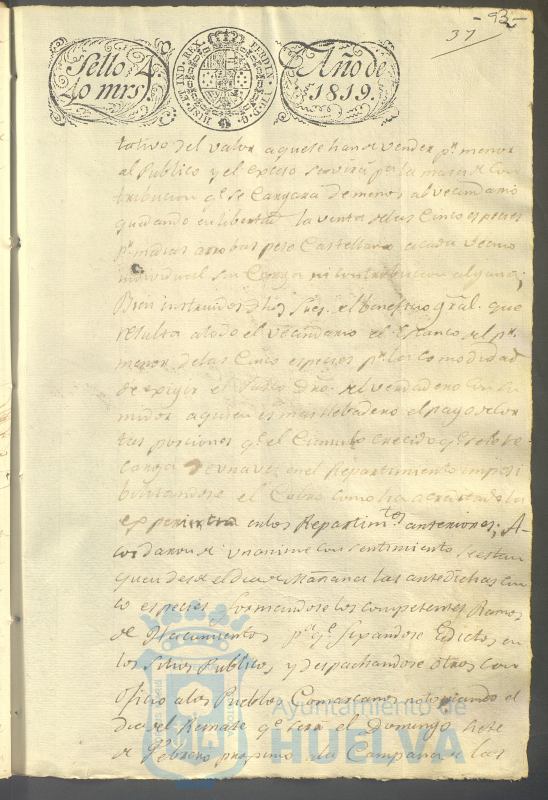 - 93 -
37
Sello 4º
40 mrs.
HISP. ET IND. REX. FERDIN. VII. D. G.
Año de
1819.
tativo del valor a que se han de vender pr. menor
al Publico y el exceso servirá pa. la masa de Con
tribucion qe. se Cargara de menos al vecindario
quedando en libertad la venta de las Cinco especies
pr. maior arrobas peso Castellano a cada vecino
individual sin Carga ni contribucion alguna;
Bien instruidos dhos Sres. el beneficio gral. que
resulta a todo el vecindario el Estanco del pr.
menor de las Cinco especies pr. la Comodidad
de exigir el dro. del verdadero Consu
midor a quien es mas llebadero el pago de cor
tas porciones qe. el Cumulo crecido qe. se le re
carga de una vez en el Repartimiento imposi
bilitandose el Cobro como ha acreditado la
experiencia en los Repartimtos. anteriores; A-
cordaron de unanime consentimiento, se estan
quen desde el dia de Mañana las antedichas Cin
co especies formandose los competentes Ramos
de Hacimientos, pa. qe. fixandose Edictos en
los Sitios Publicos, y despachandose otros con
oficio a los Pueblos Comarcanos notoriando el
dia del Remate qe. será el Domingo siete
de Febrero proximo de Campana a las
Ayuntamiento de
HUELVA